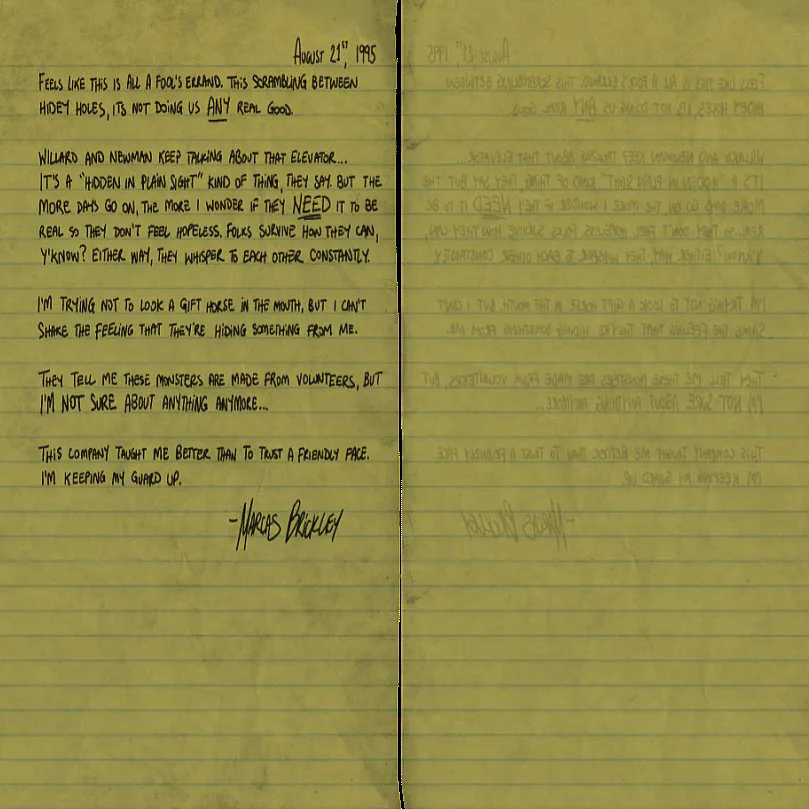 August 21st, 1995
Feels like this is all a fool's errand. This scrambling between
hidey holes, its not doing us ANY real good.
Willard and Newman keep talking about that elevator...
It's a "hidden in plain sight" kind of thing, they say. But the
more days go on, the more I wonder if they NEED it to be
real so they don't feel hopeless. Folks survive how they can,
y'know? Either way, they whisper to each other constantly.
I'm trying not to look a gift horse in the mouth, but I can't
shake the feeling that they're hiding something from me.
They tell me these monsters are made from volunteers, but
I'm not sure about anything anymore...
This company taught me better than to trust a friendly face.
I'm keeping my guard up.
-Marcas Brickley